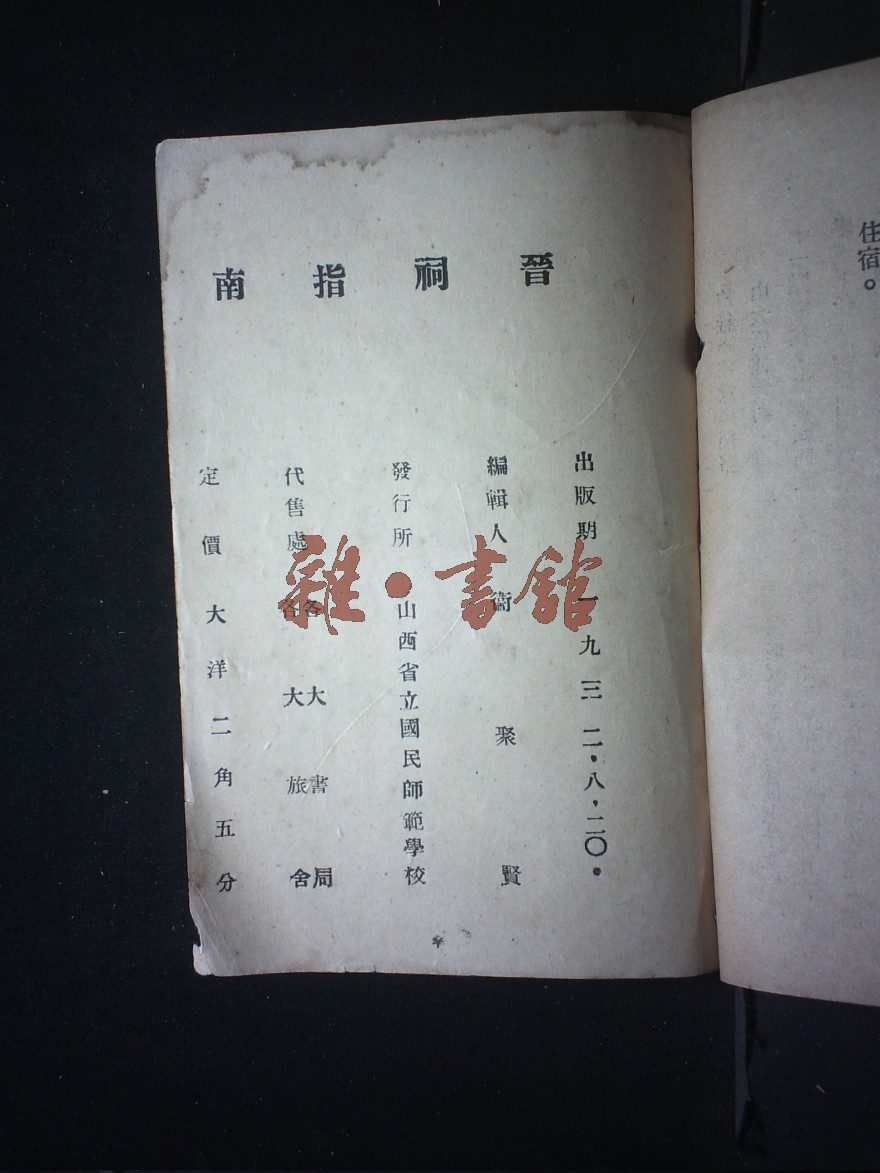 住宿。
晉祠指南
出版期 一九三二．八．二〇．
編輯人 衛聚賢
發行所 山西省立國民師範學校
代售處 各大書局
各大旅舍
定價大洋二角五分
雜·書館